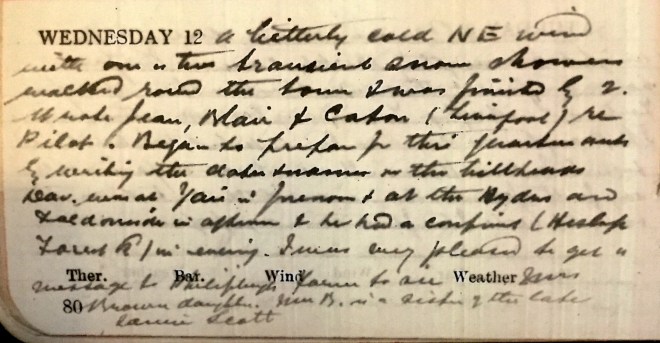 WEDNESDAY 12 A bitterly cold NE wind
with one or two transient snow showers
walked round the town & was finished by 2.
Wrote Jean, Blair & Caton (Liverpool) re
Pilot. Began to prepare for this quarters
by writing the dates & names on the billheads
Dav. was at Yair in forenoon & at the and
in & he had a confinet (Heslop
Forest R) in evening. I was very pleased to get a
Ther. Bar. Wind Weather
message to Philiphaugh farm to see Mrs
80 Brown daughter. Mrs B. is a sister of the late
Scott